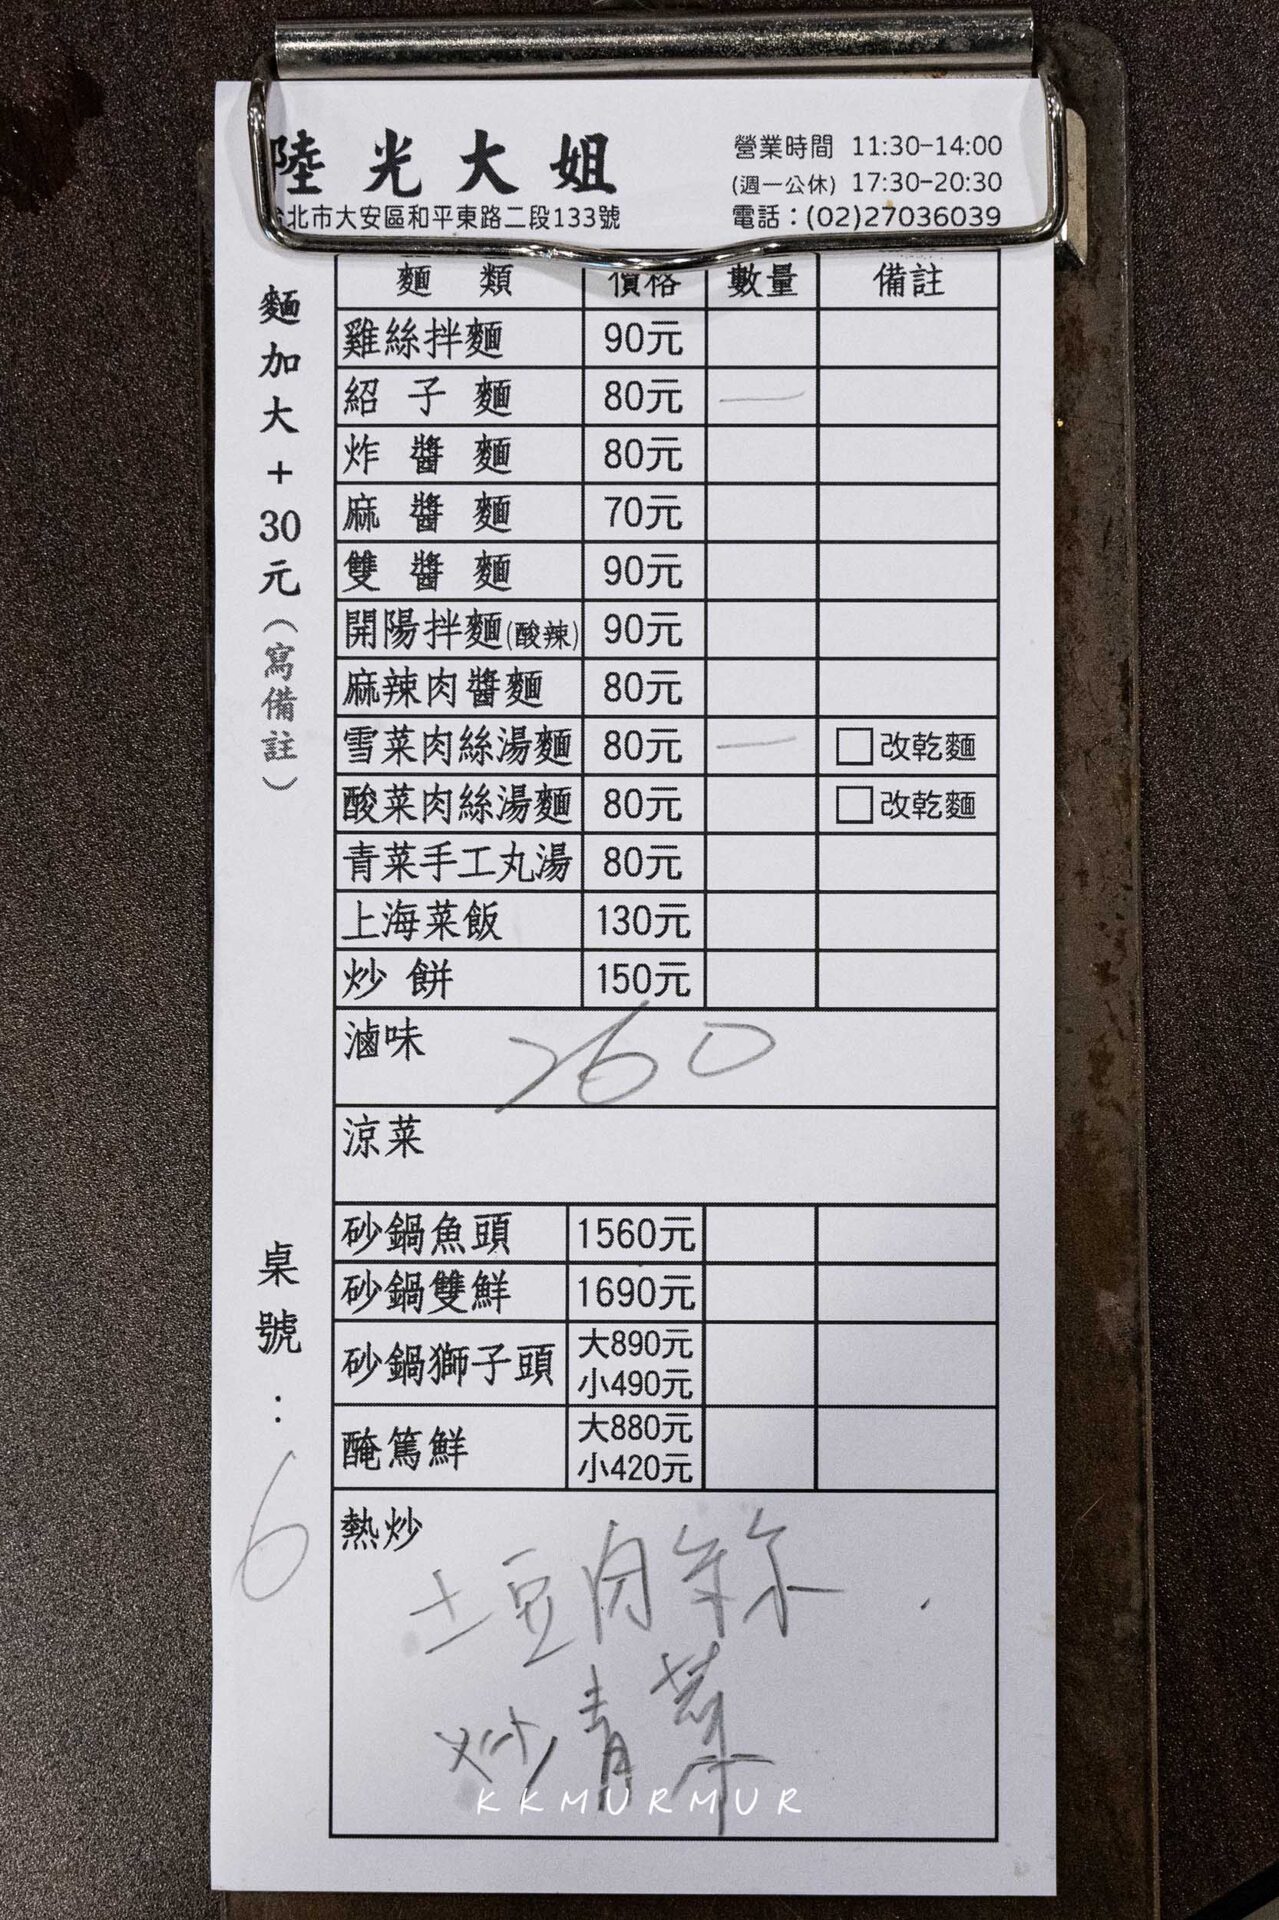 陸光大姐
營業時間 11:30-14:00
(週一公休) 17:30-20:30
台北市大安區和平東路二段133號
電話:(02)27036039
麵加大+30元(寫備註)
麵類 價格 數量 備註
雞絲拌麵 90元
紹子麵 80元 一
炸醬麵 80元
麻醬麵 70元
雙醬麵 90元
開陽拌麵(酸辣) 90元
麻辣肉醬麵 80元
雪菜肉絲湯麵 80元 一 □改乾麵
酸菜肉絲湯麵 80元 □改乾麵
青菜手工丸湯 80元
上海菜飯 130元
炒餅 150元
滷味 260
涼菜
砂鍋魚頭 1560元
砂鍋雙鮮 1690元
砂鍋獅子頭 大890元
小490元
醃篤鮮 大880元
小420元
桌號:6
熱炒
土豆肉絲
炒青菜
KKMURMUR